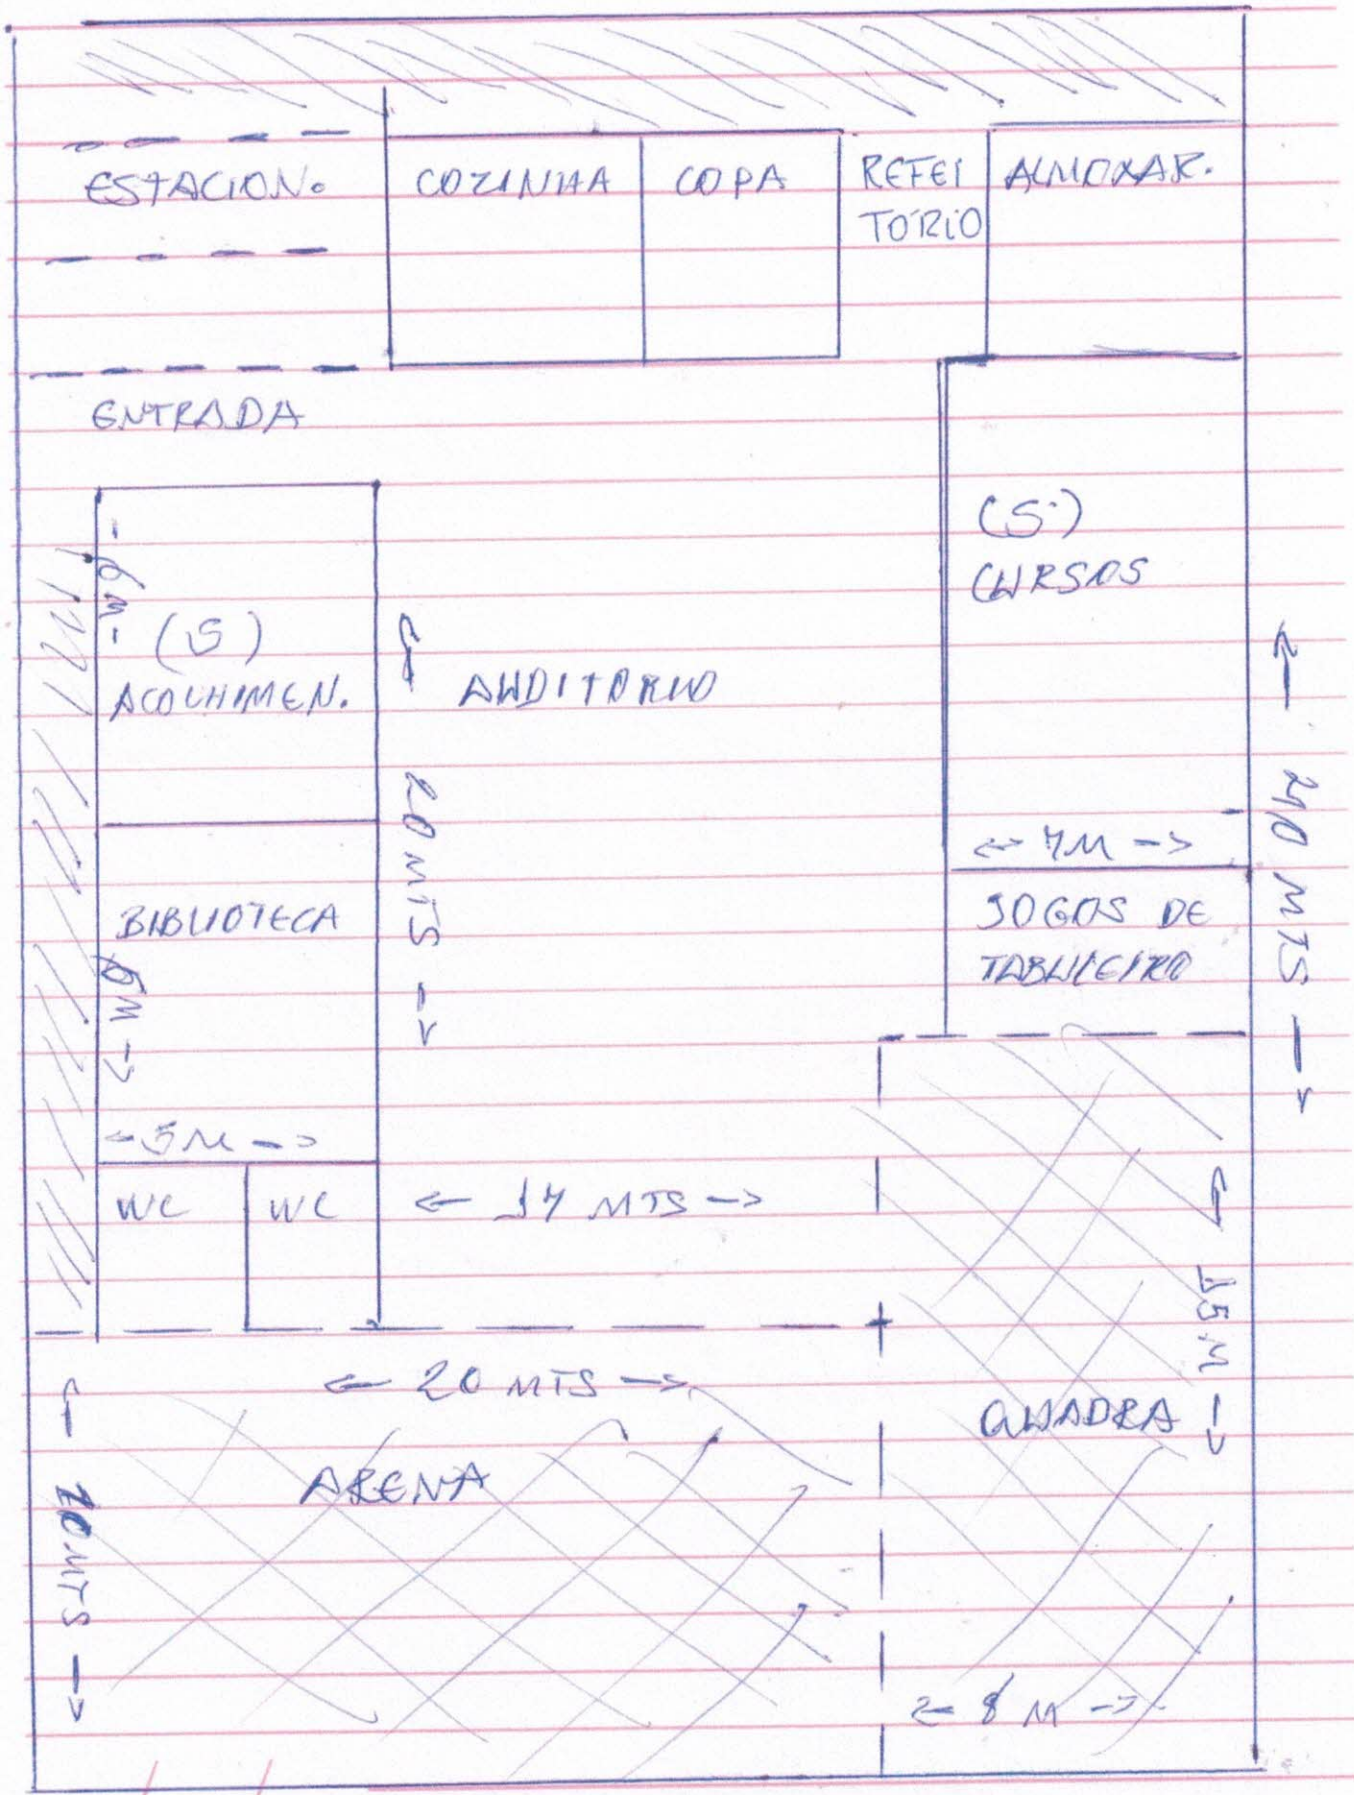 ESTACION.
COZINHA
COPA
REFEI
TÓRIO
ALMOXAR.
ENTRADA
(S)
CURSOS
- 6M -
(S)
ACOLHIMEN.
AUDITORIO
20 MTS
40 MTS
7M
BIBLIOTECA
6M
JOGOS DE
TABULEIRO
5M
WC
WC
17 MTS
15M
20 MTS
QUADRA
ARENA
10 MTS
8 M